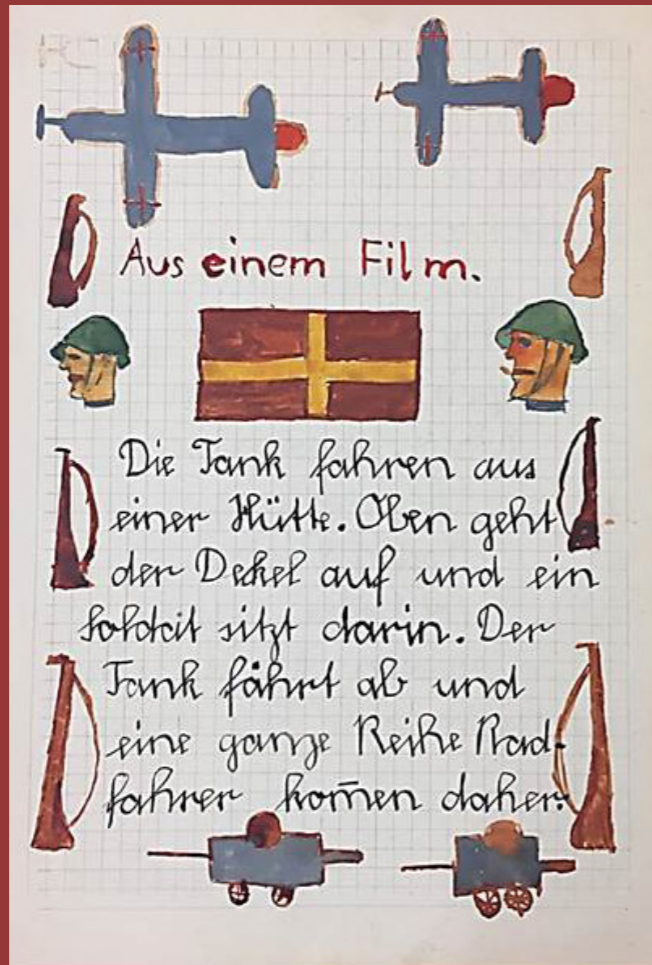 Aus einem Film.
Die Tank fahren aus
einer Hütte. Oben geht
der Dekel auf und ein
Soldat sitzt darin. Der
Tank fährt ab und
eine ganze Reihe Rad-
fahrer kom̄en daher.